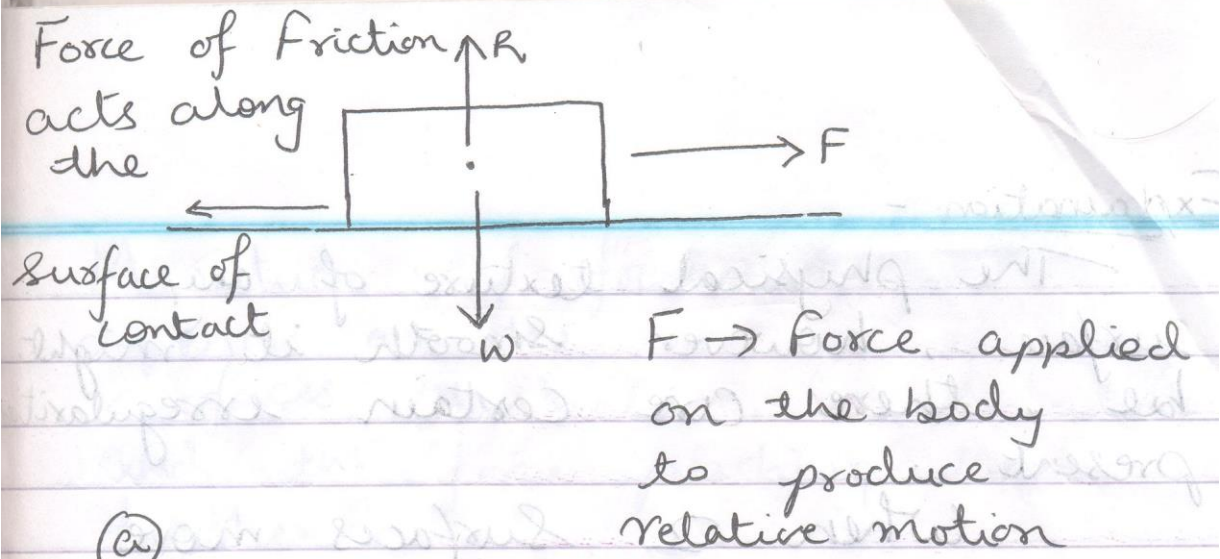 Force of Friction
acts along
the
surface of
contact
R
F
W
F → Force applied
on the body
to produce
relative motion
(a)